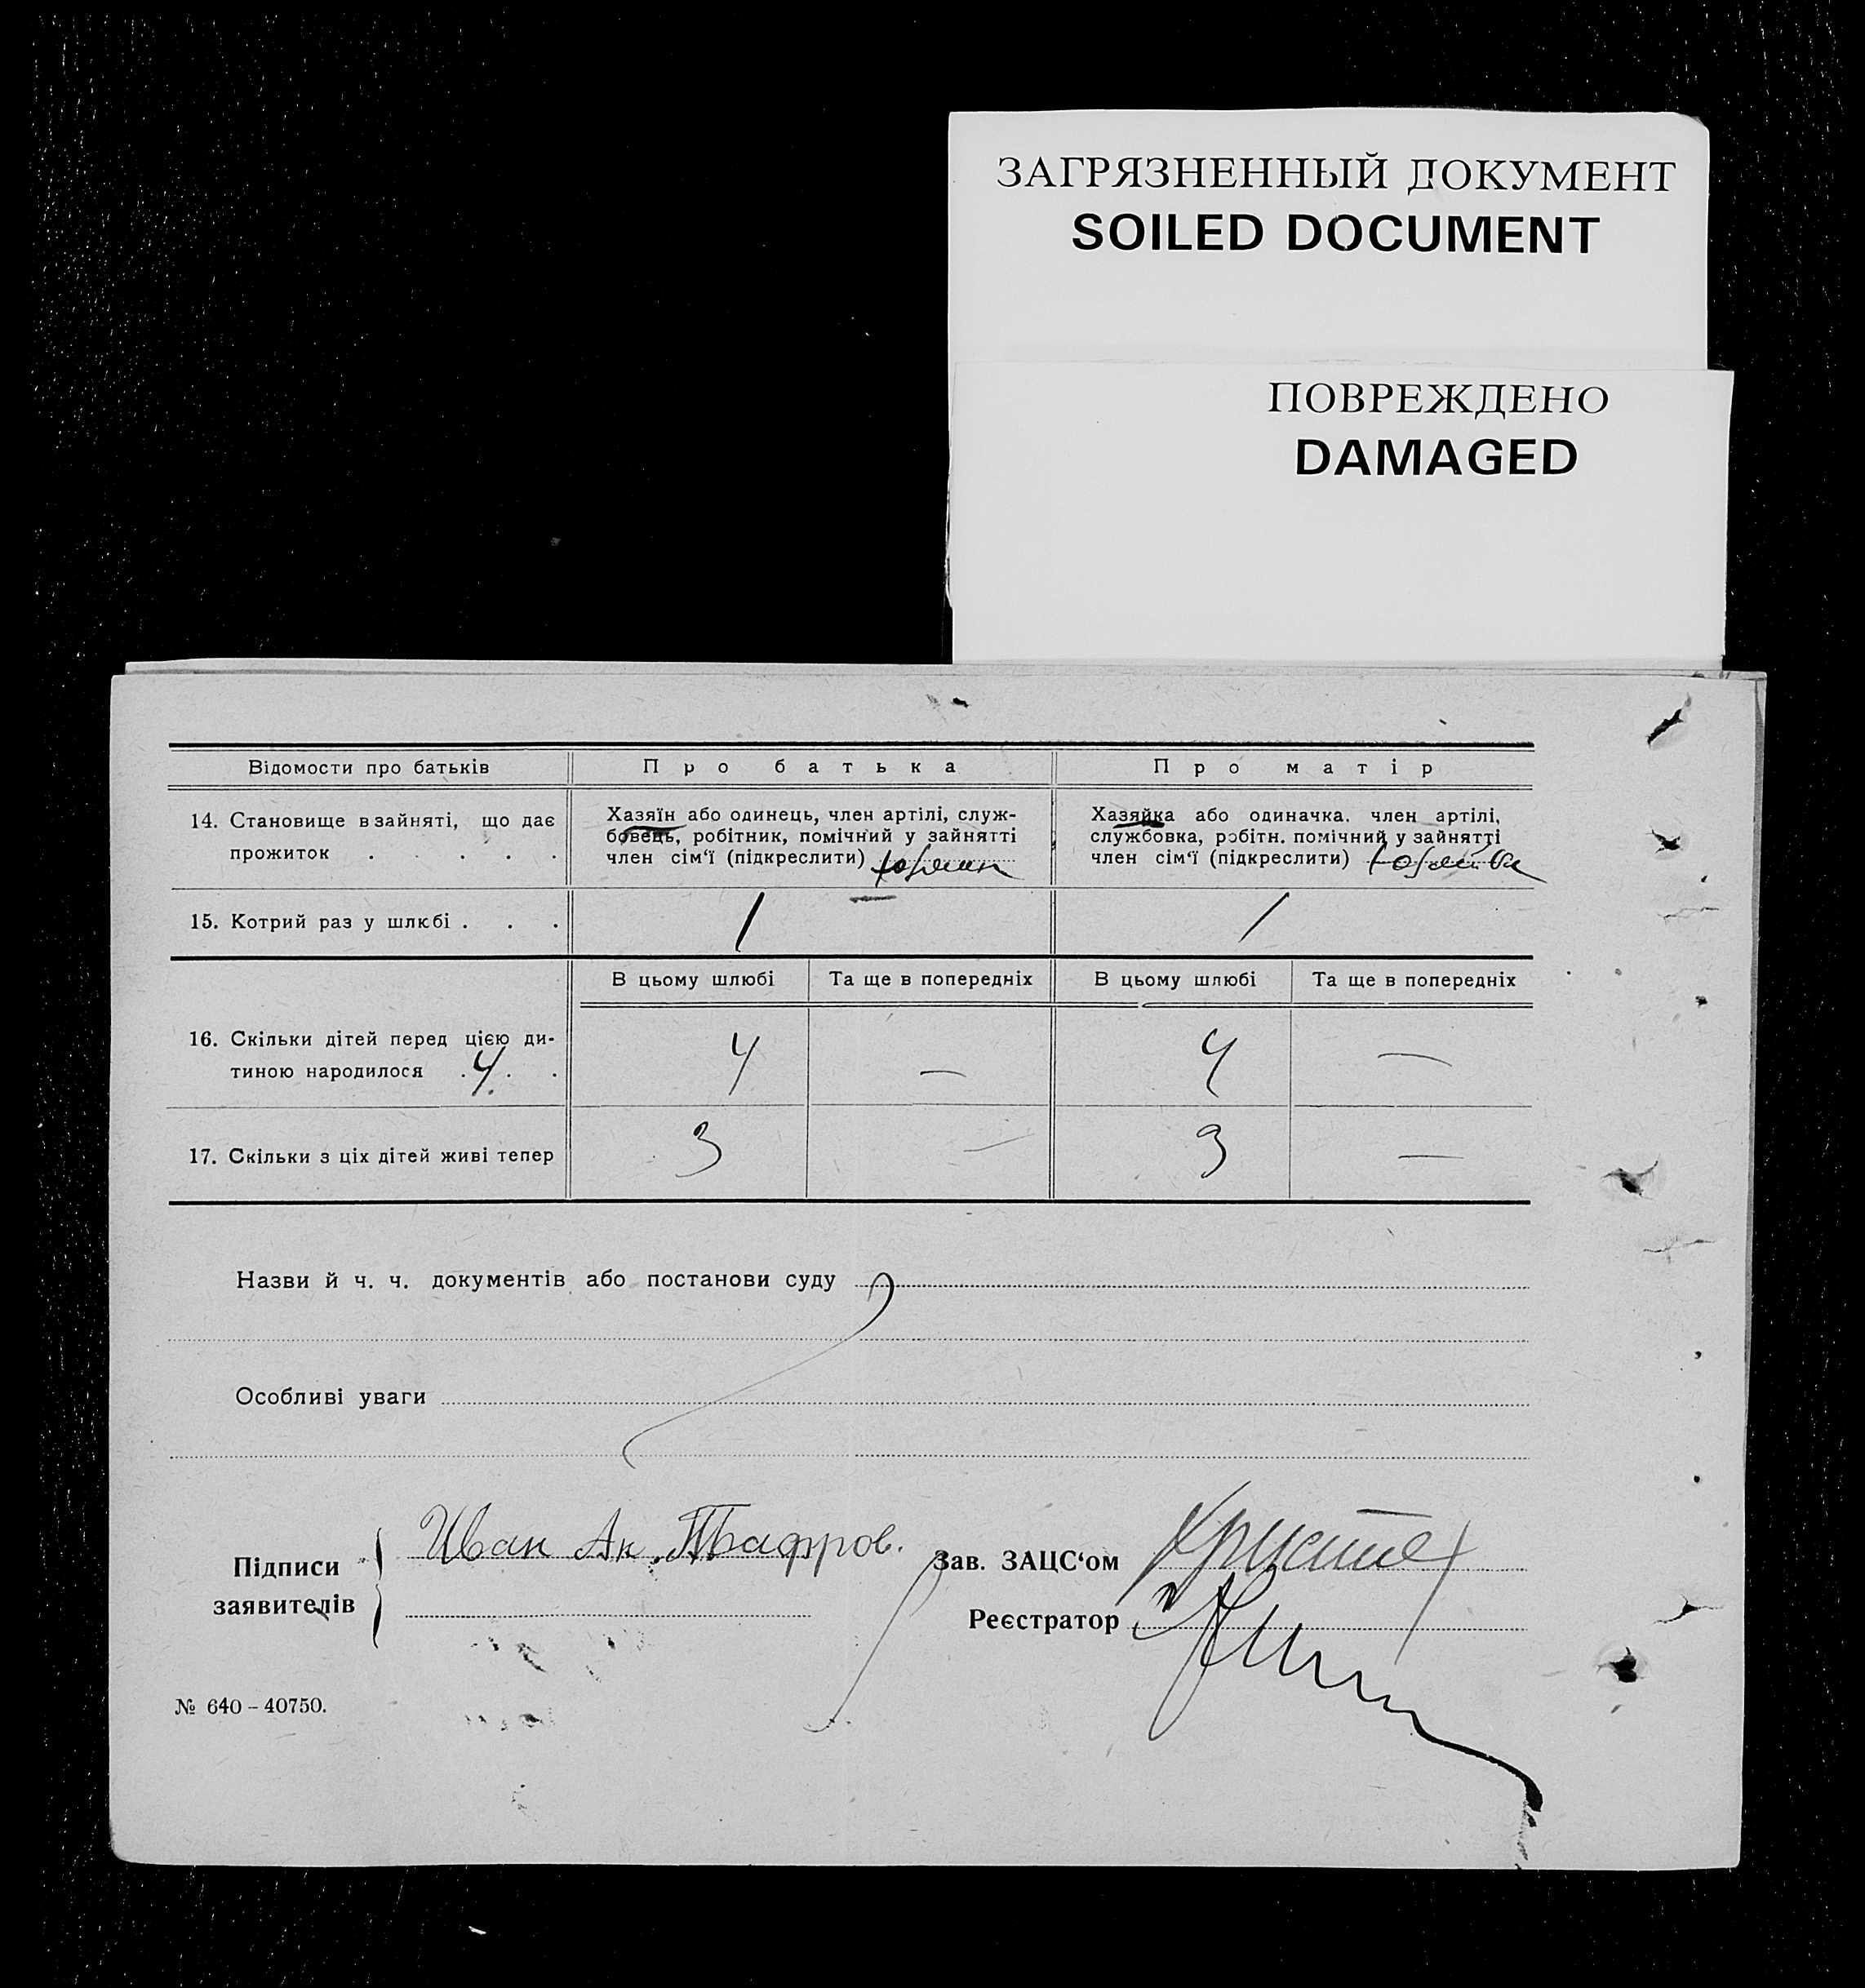 ЗАГРЯЗНЕННЫЙ ДОКУМЕНТ
SOILED DOCUMENT
ПОВРЕЖДЕНО
DAMAGED
Відомости про батьків
Про батька
Про матір
14. Становище в зайняті, що дає
прожиток . . . . .
Хазяїн або одинець, член артілі, служ-
бовець, робітник, помічний у зайнятті
член сім‘ї (підкреслити)
Хазяйка або одиначка, член артілі,
службовка, робітн. помічний у зайнятті
член сім‘ї (підкреслити)
15. Котрий раз у шлюбі . . .
1
1
В цьому шлюбі
Та ще в попередніх
В цьому шлюбі
Та ще в попередніх
16. Скільки дітей перед цією ди-
тиною народилося . 4 . .
4
—
4
—
17. Скільки з ціх дітей живі тепер
3
—
3
—
Назви й ч. ч. документів або постанови суду
Особливі уваги
Підписи
заявителів
Иван Ак.
Зав. ЗАЦС‘ом
Реєстратор
№ 640 – 40750.